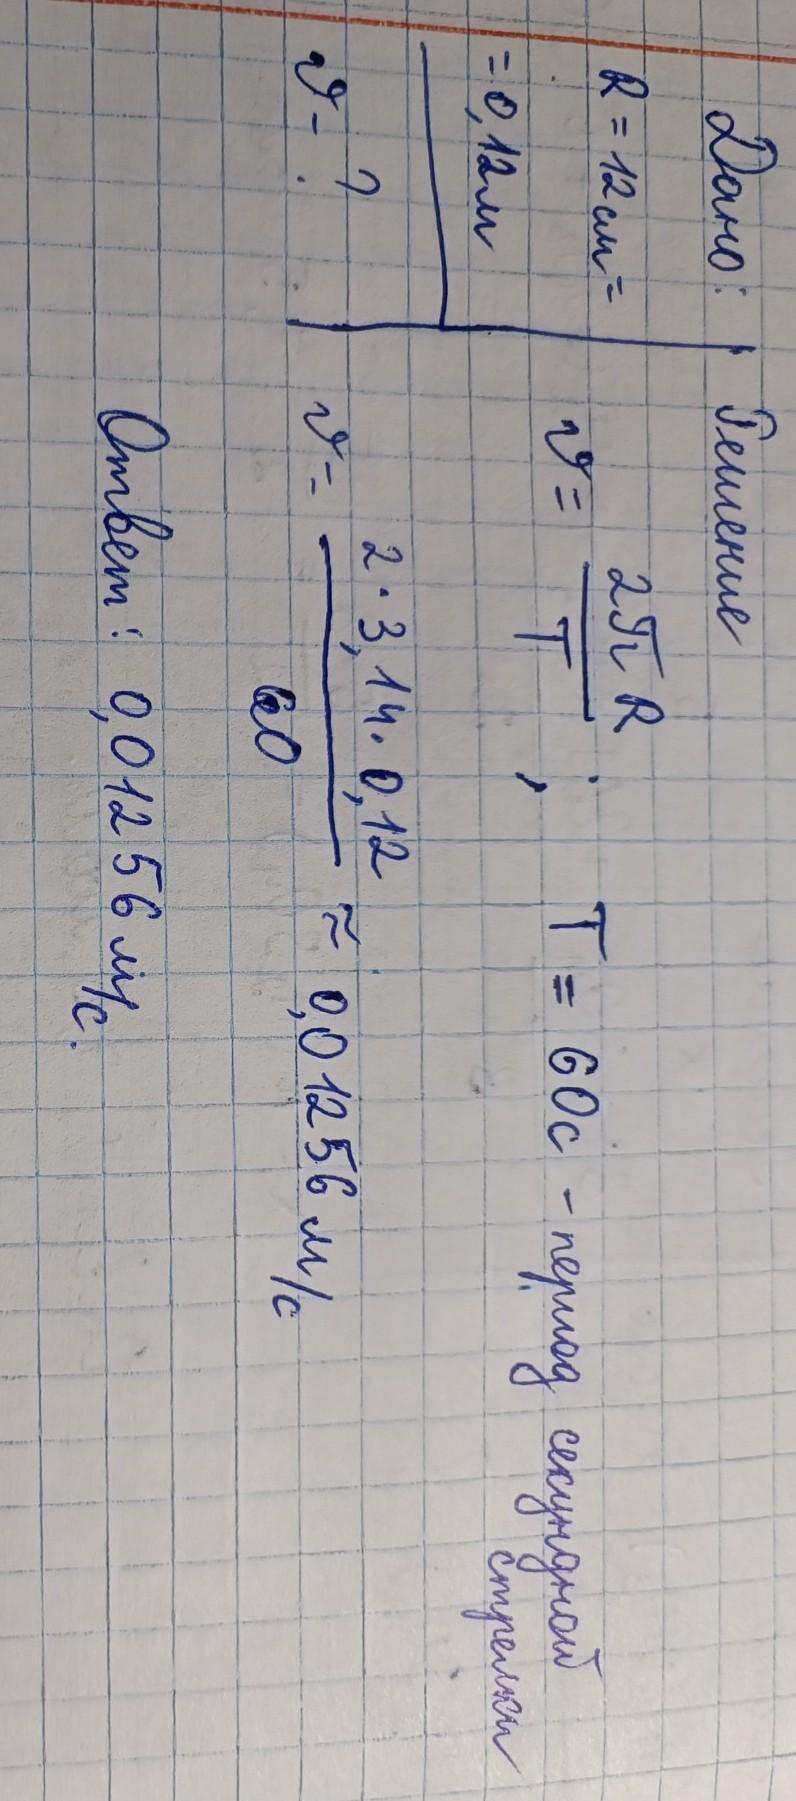 Дано:
R = 12 см =
= 0,12 м
υ - ?
Решение
υ = 2πR / T ; T = 60 с - период секундной
стрелки
υ = 2·3,14·0,12 / 60 ≈ 0,01256 м/с
Ответ: 0,01256 м/с.